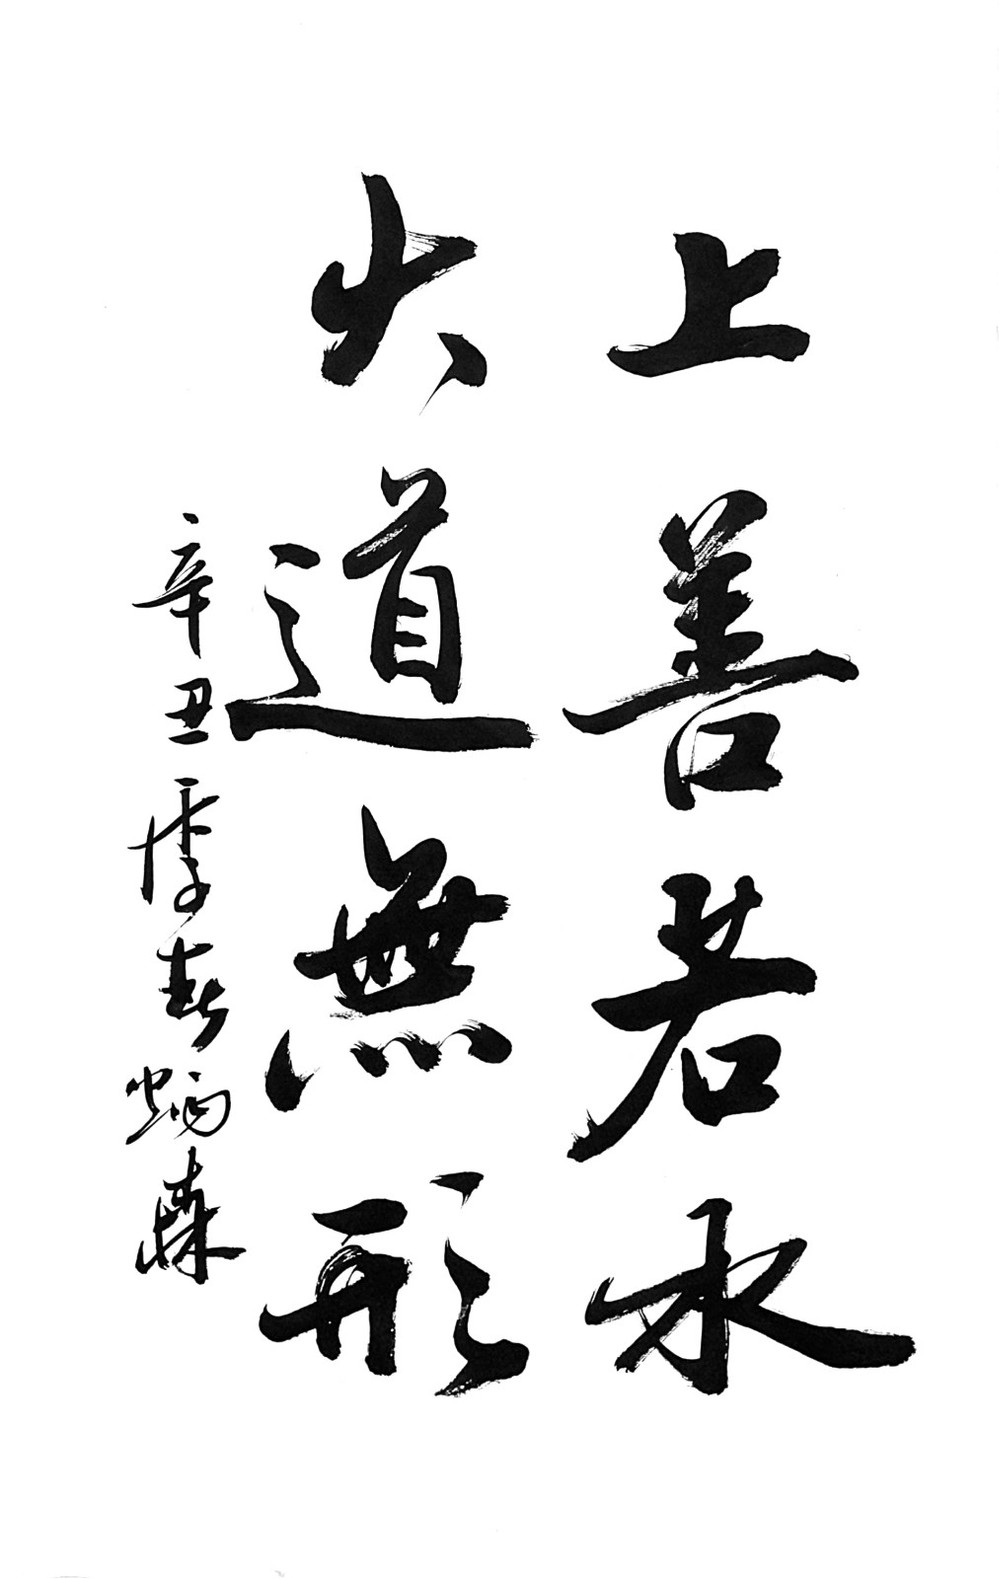 上善若水
大道無形
辛丑季春炳森